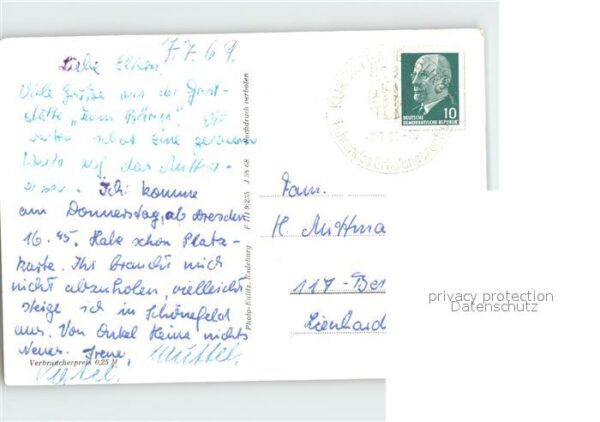 7.7.69.
Liebe Eltern,
Viele Grüße aus der Gast-
stätte "Zum Bären". Wir
warten schon eine geraume
Weile auf das Mittag-
essen. Ich komme
am Donnerstag, ab Dresden
16.45. Habe schon Platz-
karte. Ihr braucht mich
nicht abzuholen, vielleicht
steige ich in Schönefeld
aus. Von Onkel Heinz nichts
Neues. Irene,
Verbraucherpreis 0,25 M
Photo-Kulitz, Radeburg F III 9/235 J 38 68 Nachdruck verboten
DEUTSCHE
DEMOKRATISCHE REPUBLIK
10
Fam.
H. Mittma
117-Ber
Lienhard
privacy protection
Datenschutz